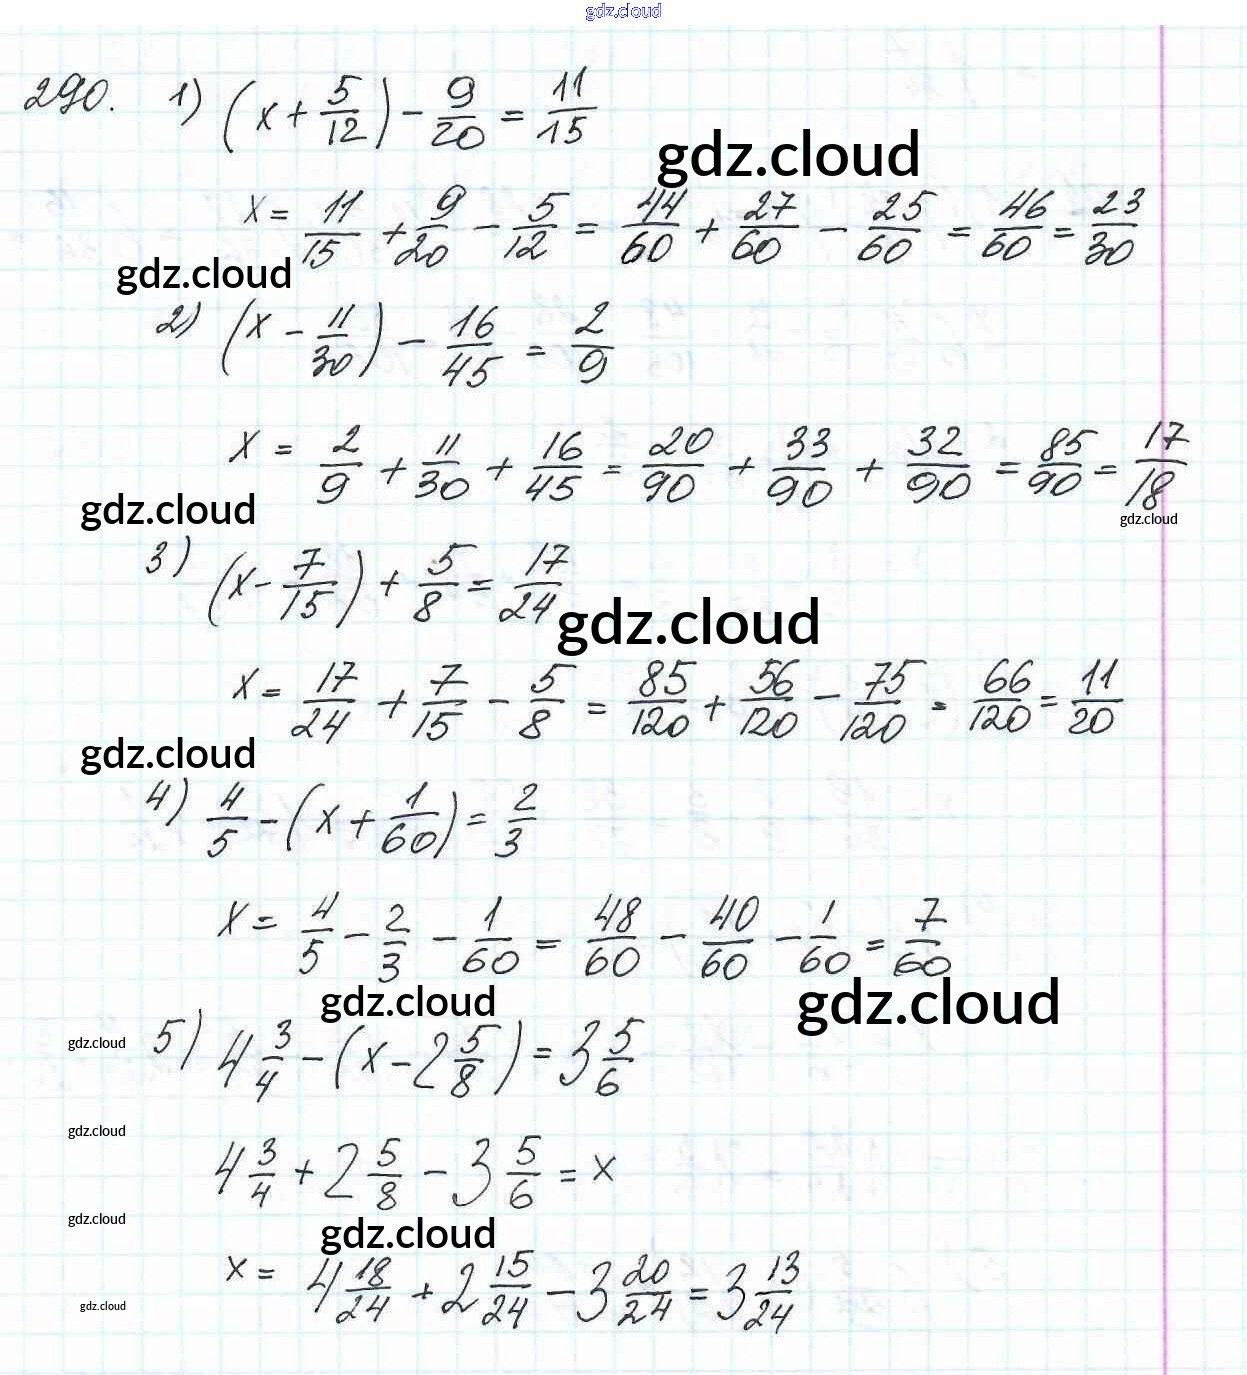 gdz.cloud
290. 1) (x + 5/12) - 9/20 = 11/15
gdz.cloud
x = 11/15 + 9/20 - 5/12 = 44/60 + 27/60 - 25/60 = 46/60 = 23/30
gdz.cloud
2) (x - 11/30) - 16/45 = 2/9
x = 2/9 + 11/30 + 16/45 = 20/90 + 33/90 + 32/90 = 85/90 = 17/18
gdz.cloud
gdz.cloud
3) (x - 7/15) + 5/8 = 17/24
gdz.cloud
x = 17/24 + 7/15 - 5/8 = 85/120 + 56/120 - 75/120 = 66/120 = 11/20
gdz.cloud
4) 4/5 - (x + 1/60) = 2/3
x = 4/5 - 2/3 - 1/60 = 48/60 - 40/60 - 1/60 = 7/60
gdz.cloud
gdz.cloud
gdz.cloud
5) 4 3/4 - (x - 2 5/8) = 3 5/6
gdz.cloud
4 3/4 + 2 5/8 - 3 5/6 = x
gdz.cloud
gdz.cloud
x = 4 18/24 + 2 15/24 - 3 20/24 = 3 13/24
gdz.cloud